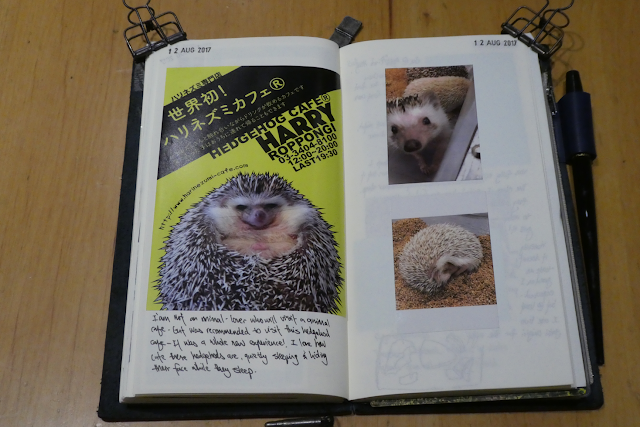 12 AUG 2017
12 AUG 2017
ハリネズミ専門店
世界初!
ハリネズミカフェ®
HEDGEHOG CAFE®
HARRY
ROPPONGI
03-3404-8100
12:00-20:00
LAST 19:30
http://www.harinezumi-cafe.com
I am not an animal-lover who will visit a animal
cafe. But was recommended to visit this hedgehog
cafe. It was a whole new experience! I love how
cute these hedgehogs are, quietly sleeping & hiding
their face while they sleep.